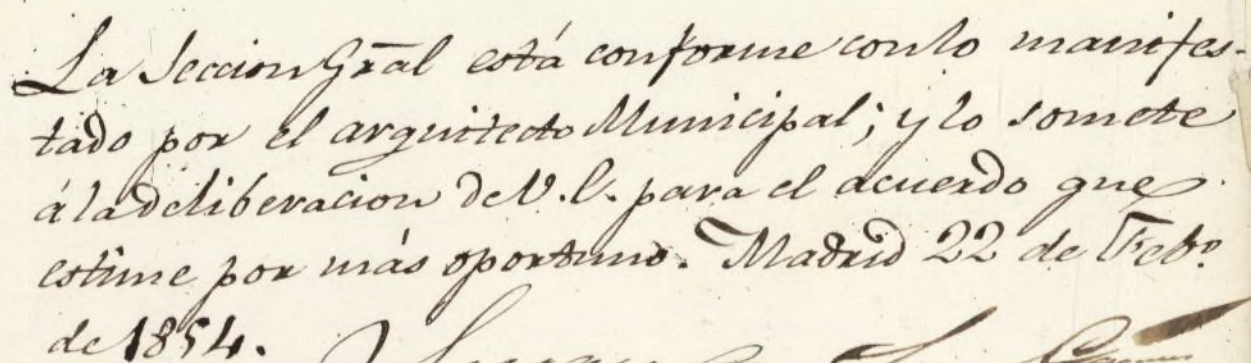 La Seccion Gral está conforme con lo manifes-
tado por el arquitecto Municipal; y lo somete
á la deliberacion de V.E. para el acuerdo que
estime por más oportuno. Madrid 22 de Febo
de 1854.